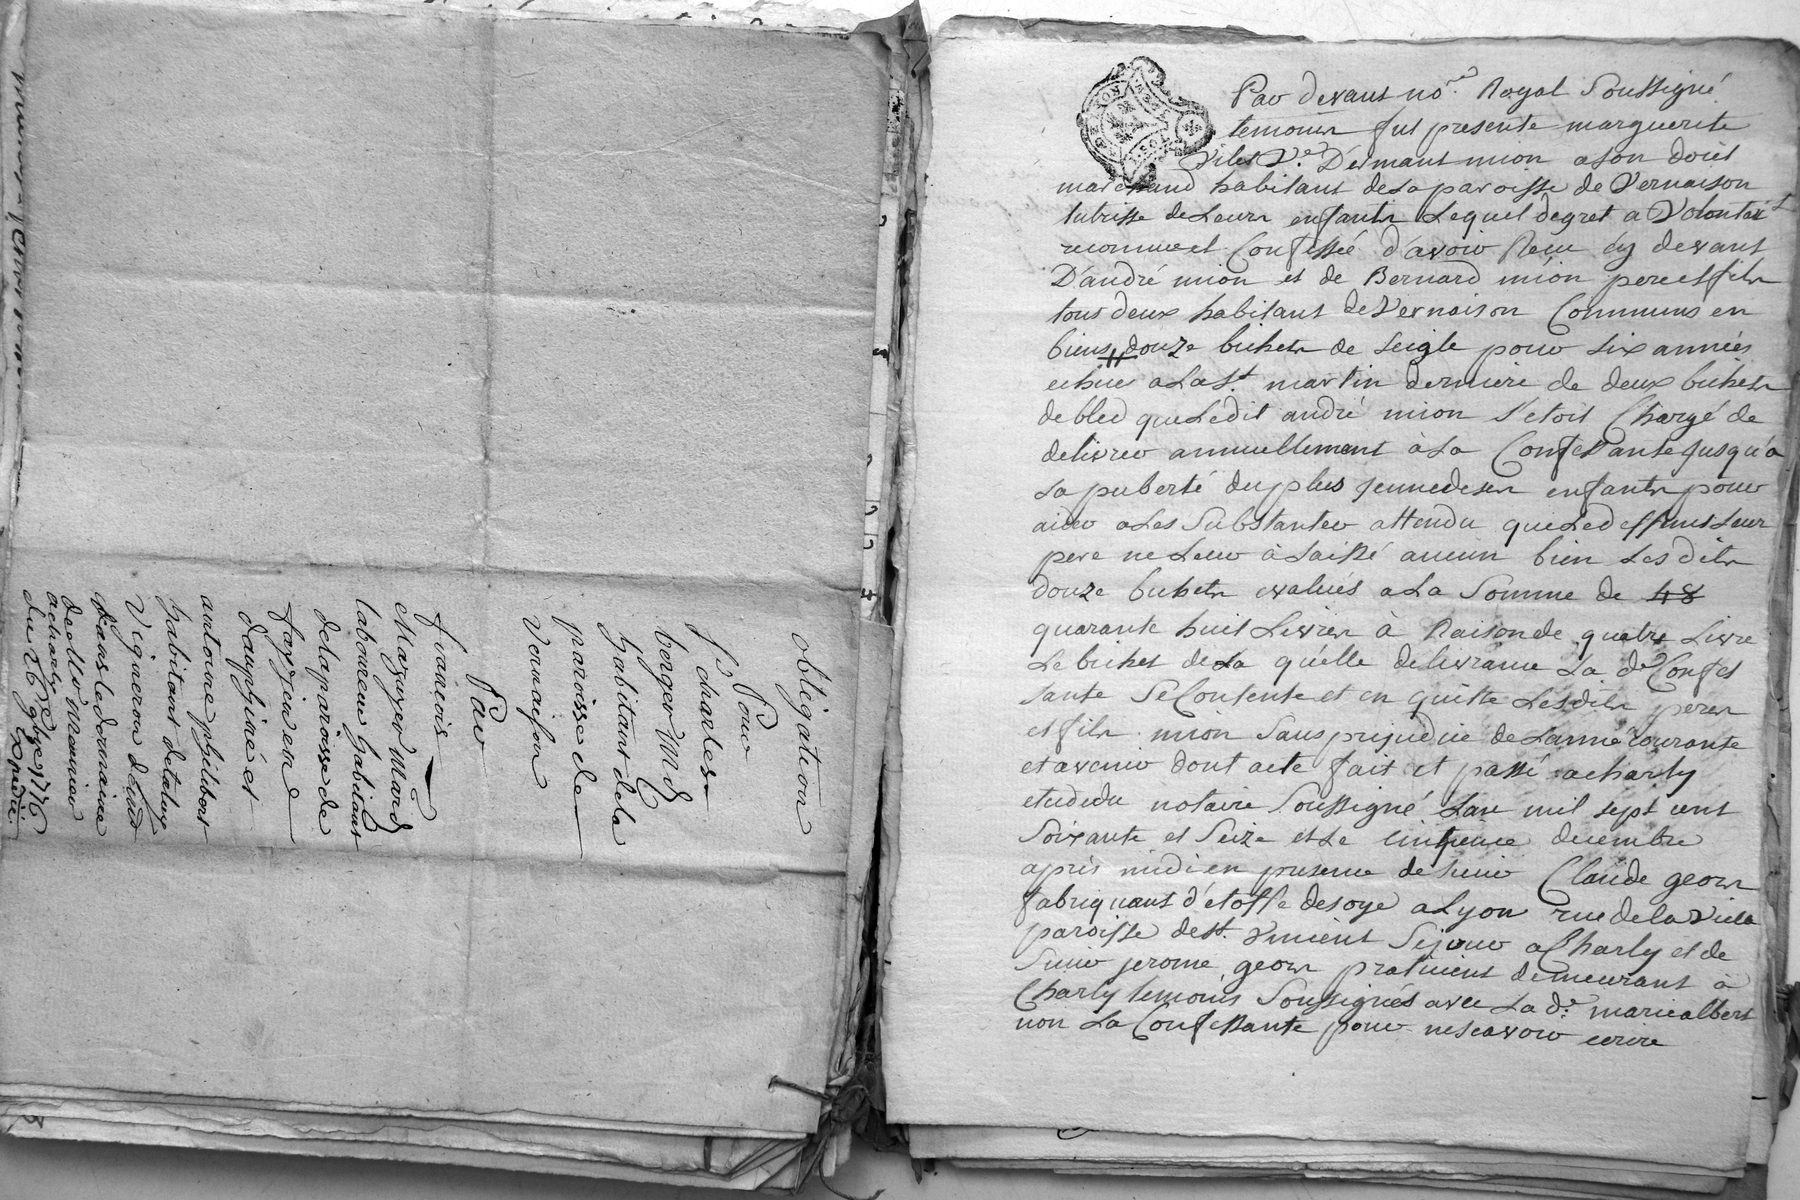 obligation
Pour
S.r charles
berger M.d
habitant dela
paroisse de
Vernaison
Par
francois
Mazuyer Mard
laboureur habitant
dela paroisse de
fayzin en
dauphiné et
antoine philibert
habitant
Vigneron
dans le domaine
acharly
du 26 9bre 1776
Expédié
Par devant no.re Royal Soussigné
temoins fut presente marguerite
Vilet V.e D'ermant mion a son doiët
marchand habitant de la paroisse de Vernaison
tutrisse de Leurs enfants Lequel degret a Volonté
reconnu et Confessé d'avoir Recu cy devant
D'andré mion et de Bernard mion pere et fils
tous deux habitant de Vernaison Communs en
biens douze bichets de Seigle pour six années
echues a La S.t martin derniere de deux bichets
de bled que Ledit andré mion s'etoit Chargé de
delivrer annuellement à La Confessante jusqu'a
La puberté du plus jeune de ses enfants pour
aider a Les Substanter attendu que Led effunt Leur
pere ne Leur à Laissé aucun bien Les dits
douze bichets evalués a La Somme de 48
quarante huit Livres à Raison de quatre Livre
Le bichet de La quelle delivrance La d.e Confes
sante Se Contente et en quitte Lesdits peres
et fils mion Sans prejudice de Lannée courante
et avenir dont acte fait et passé a charly
etude du notaire Soussigné Lan mil sept cent
Soixante et Seize et Le cinqueme decembre
après midi en presence de Sieur Claude geors
fabriquant d'étoffe de soye a Lyon rue de la Viela
paroisse de St. Vincent Sejour a Charly et de
Sieur jerome geors praticient demeurant à
Charly temoins Soussignés avec La d.e marie albert
non La Confessante pour ne scavoir ecrire